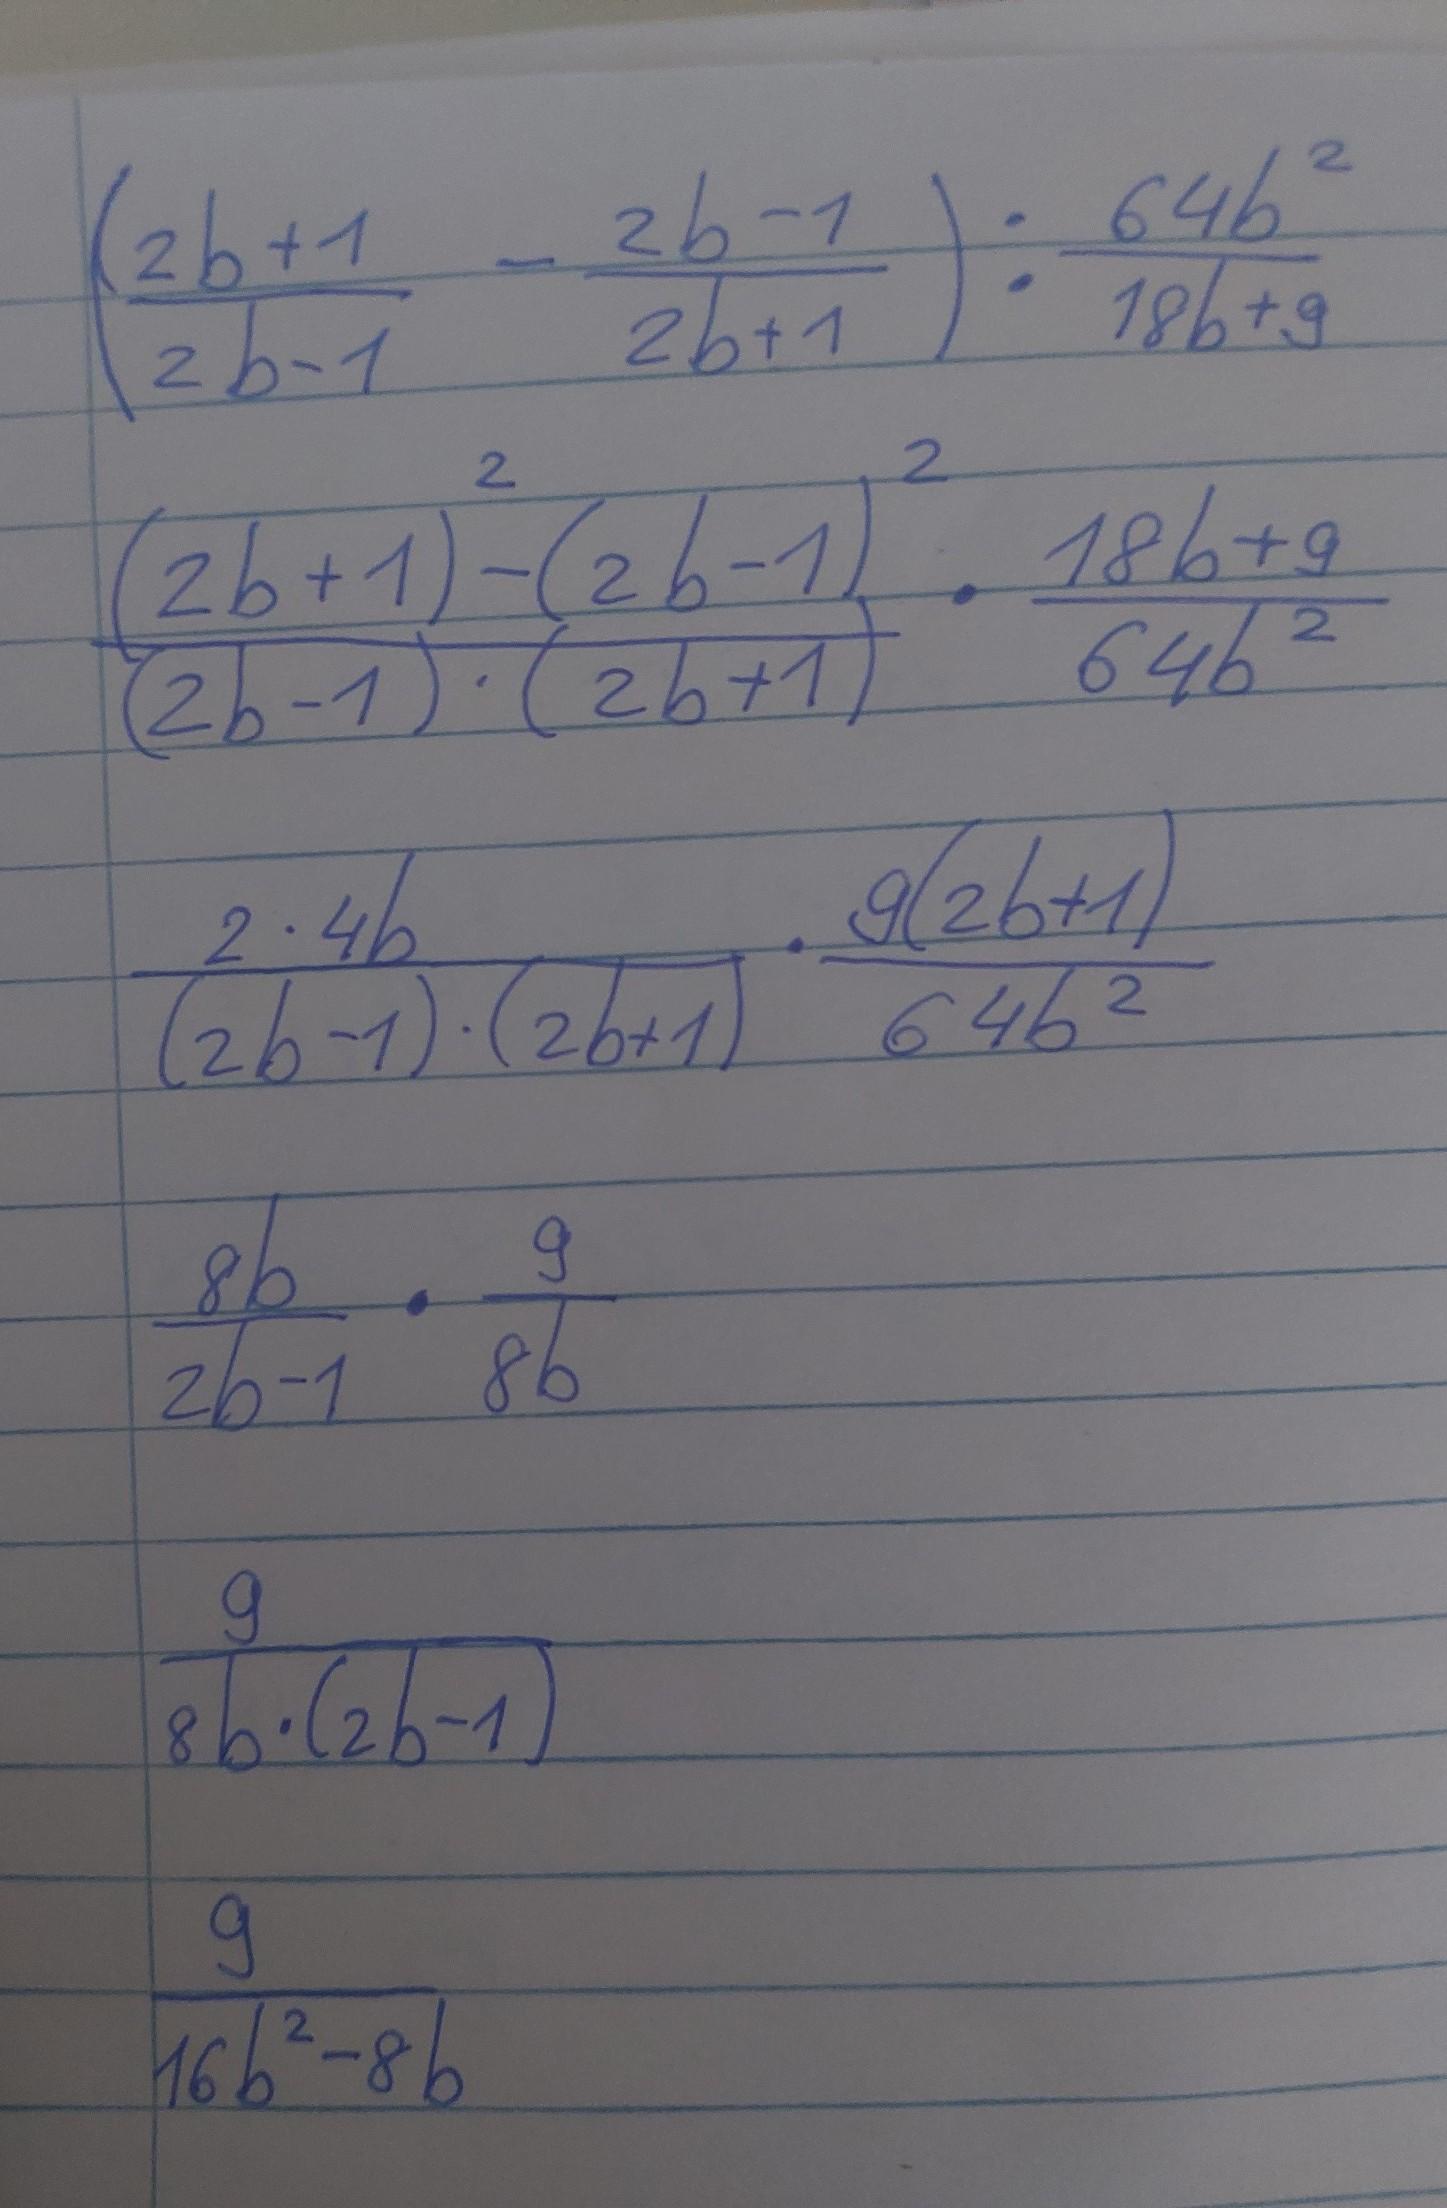 (2b+1/2b-1 - 2b-1/2b+1) : 64b²/18b+9
(2b+1)²-(2b-1)²/(2b-1)·(2b+1) · 18b+9/64b²
2·4b/(2b-1)·(2b+1) · 9(2b+1)/64b²
8b/2b-1 · 9/8b
9/8b·(2b-1)
9/16b²-8b